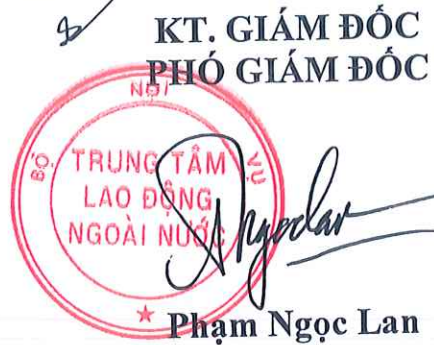 KT. GIÁM ĐỐC
PHÓ GIÁM ĐỐC
BỘ NỘI VỤ
TRUNG TÂM
LAO ĐỘNG
NGOÀI NƯỚC
Ngoclan
Phạm Ngọc Lan